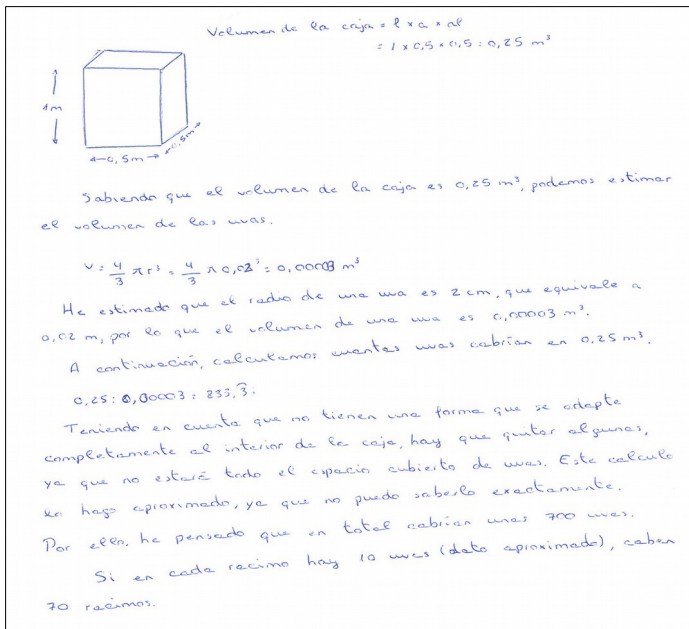 Volumen de la caja = l x a x al
= 1 x 0,5 x 0,5 = 0,25 m³
1m
0,5m
0,5m
Sabiendo que el volumen de la caja es 0,25 m³, podemos estimar
el volumen de las uvas.
V = 4/3 π r³ = 4/3 π 0,02³ = 0,00003 m³
He estimado que el radio de una uva es 2 cm, que equivale a
0,02 m, por lo que el volumen de una uva es 0,00003 m³.
A continuación, calculamos cuantas uvas cabrían en 0,25 m³.
0,25 : 0,00003 = 833,3̂.
Teniendo en cuenta que no tienen una forma que se adapte
completamente al interior de la caja, hay que quitar algunas,
ya que no estará todo el espacio cubierto de uvas. Este calculo
lo hago aproximado, ya que no puedo saberlo exactamente.
Por ello, he pensado que en total cabrían unas 700 uvas.
Si en cada racimo hay 10 uvas (dato aproximado), caben
70 racimos.